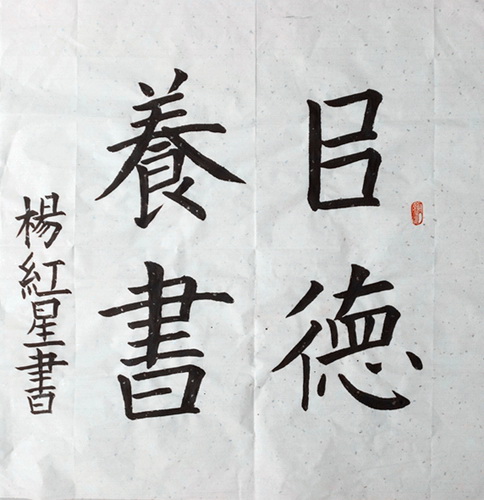 㠯德
養書
楊紅星書